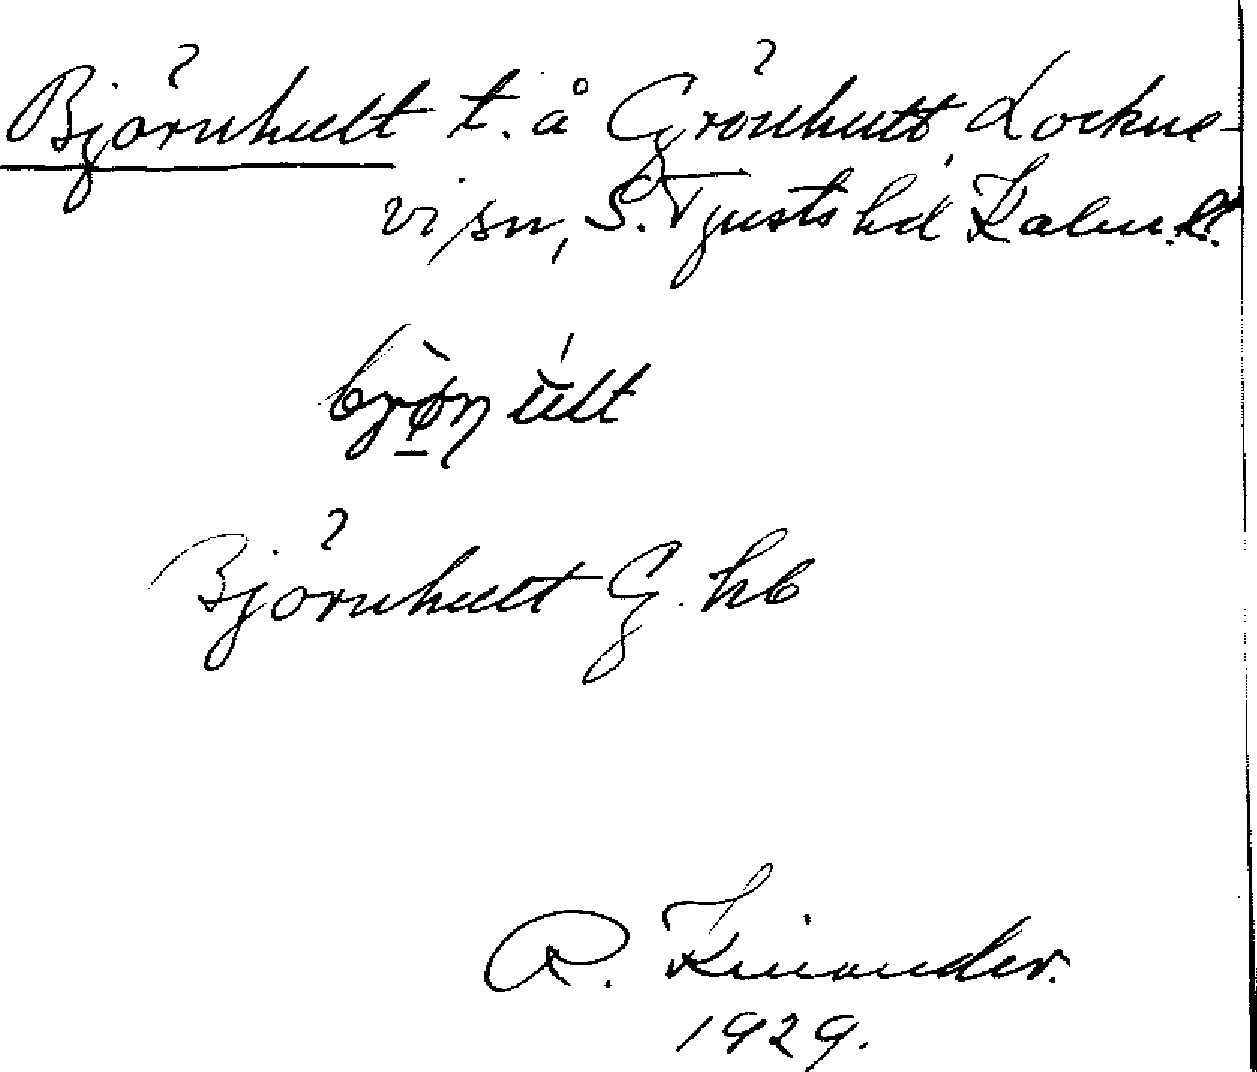 Björnhult t. å Grönhult, Lockne-
vi sn, S. Tjusts hd Kalm. l.
Björnhult G. hb
R. Kinander.
1929.